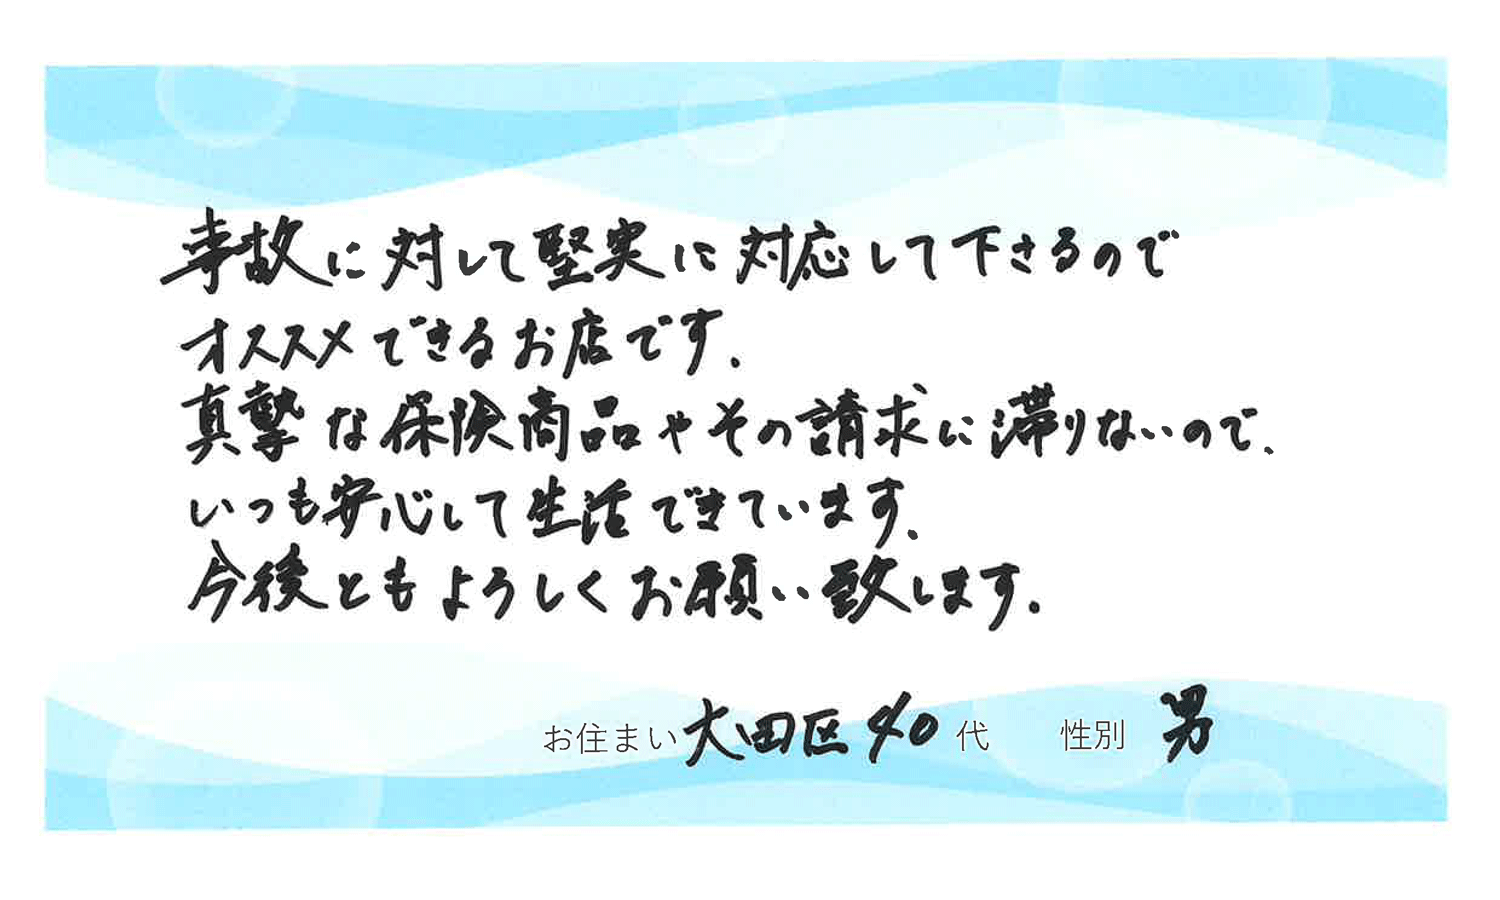 事故に対して堅実に対応して下さるので
オススメできるお店です.
真摯な保険商品やその請求に滞りないので、
いつも安心して生活できています.
今後ともよろしくお願い致します.
お住まい 大田区 40 代 性別 男